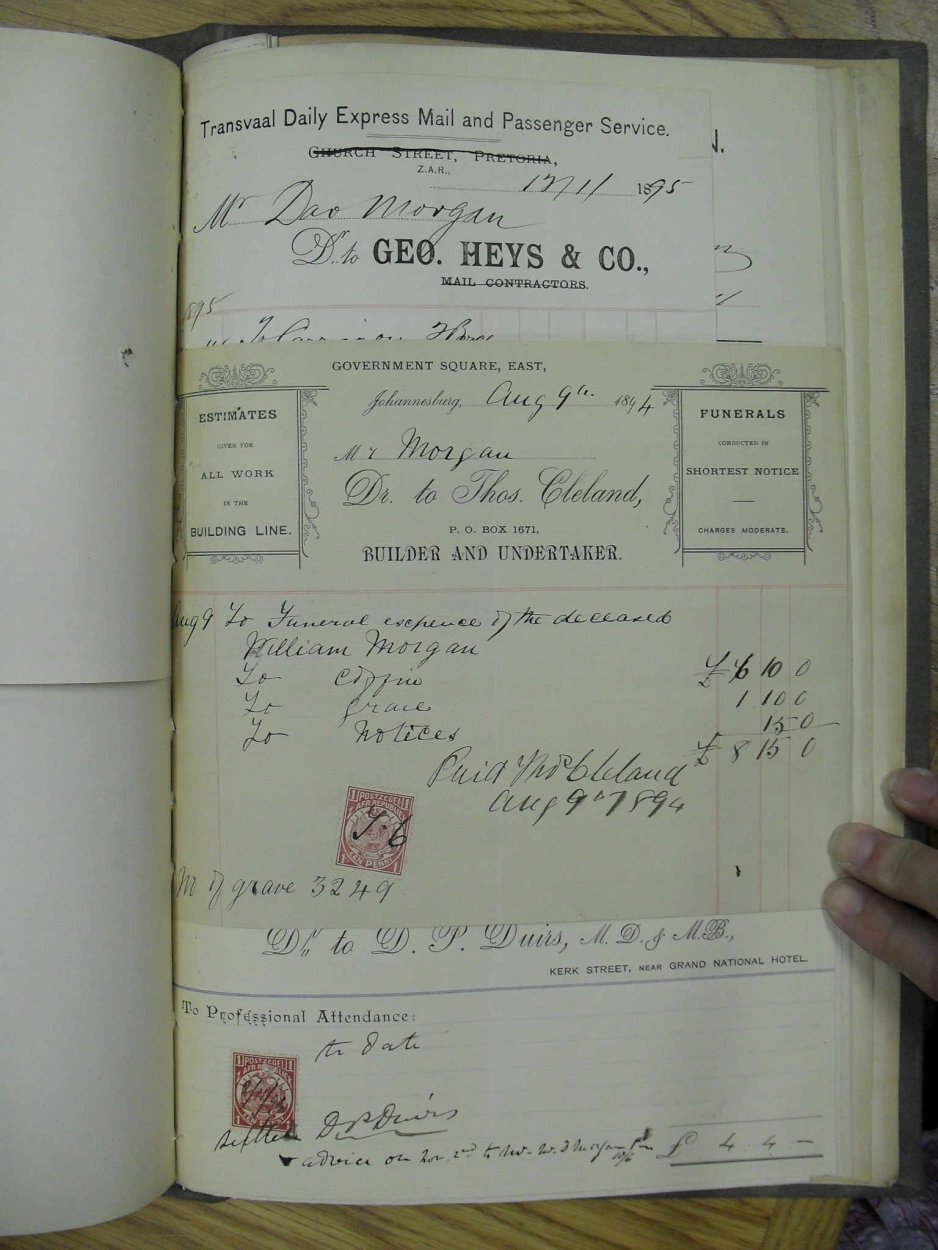 Transvaal Daily Express Mail and Passenger Service.
CHURCH STREET, PRETORIA,
Z.A.R.,
1895
Mr Dav Morgan
Dr. to GEO. HEYS & CO.,
MAIL CONTRACTORS.
1895
GOVERNMENT SQUARE, EAST,
Johannesburg, Aug 9th 1894
Mr Morgan
Dr. to Thos. Cleland,
P. O. BOX 1671,
BUILDER AND UNDERTAKER.
ESTIMATES
GIVEN FOR
ALL WORK
IN THE
BUILDING LINE.
FUNERALS
CONDUCTED IN
SHORTEST NOTICE
CHARGES MODERATE.
Aug 9 To Funeral expence of the deceased
William Morgan
To coffin £ 6 10 0
To grave 1 10 0
To Notices 15 0
£ 8 15 0
Paid Thos Cleland
Aug 9th 1894
1 POSTZEGEL 1
Z. AFR. REPUBLIEK
T.C
1 EEN PENNY 1
No of grave 3249
Dr. to D. P. Duirs, M. D. & M.B.,
KERK STREET, NEAR GRAND NATIONAL HOTEL.
To Professional Attendance:
to date
1 POSTZEGEL 1
EEN PENNY
settled D P Duirs
advice on Nov. 2nd to Mr. W. J Morgan £ 4 4 -